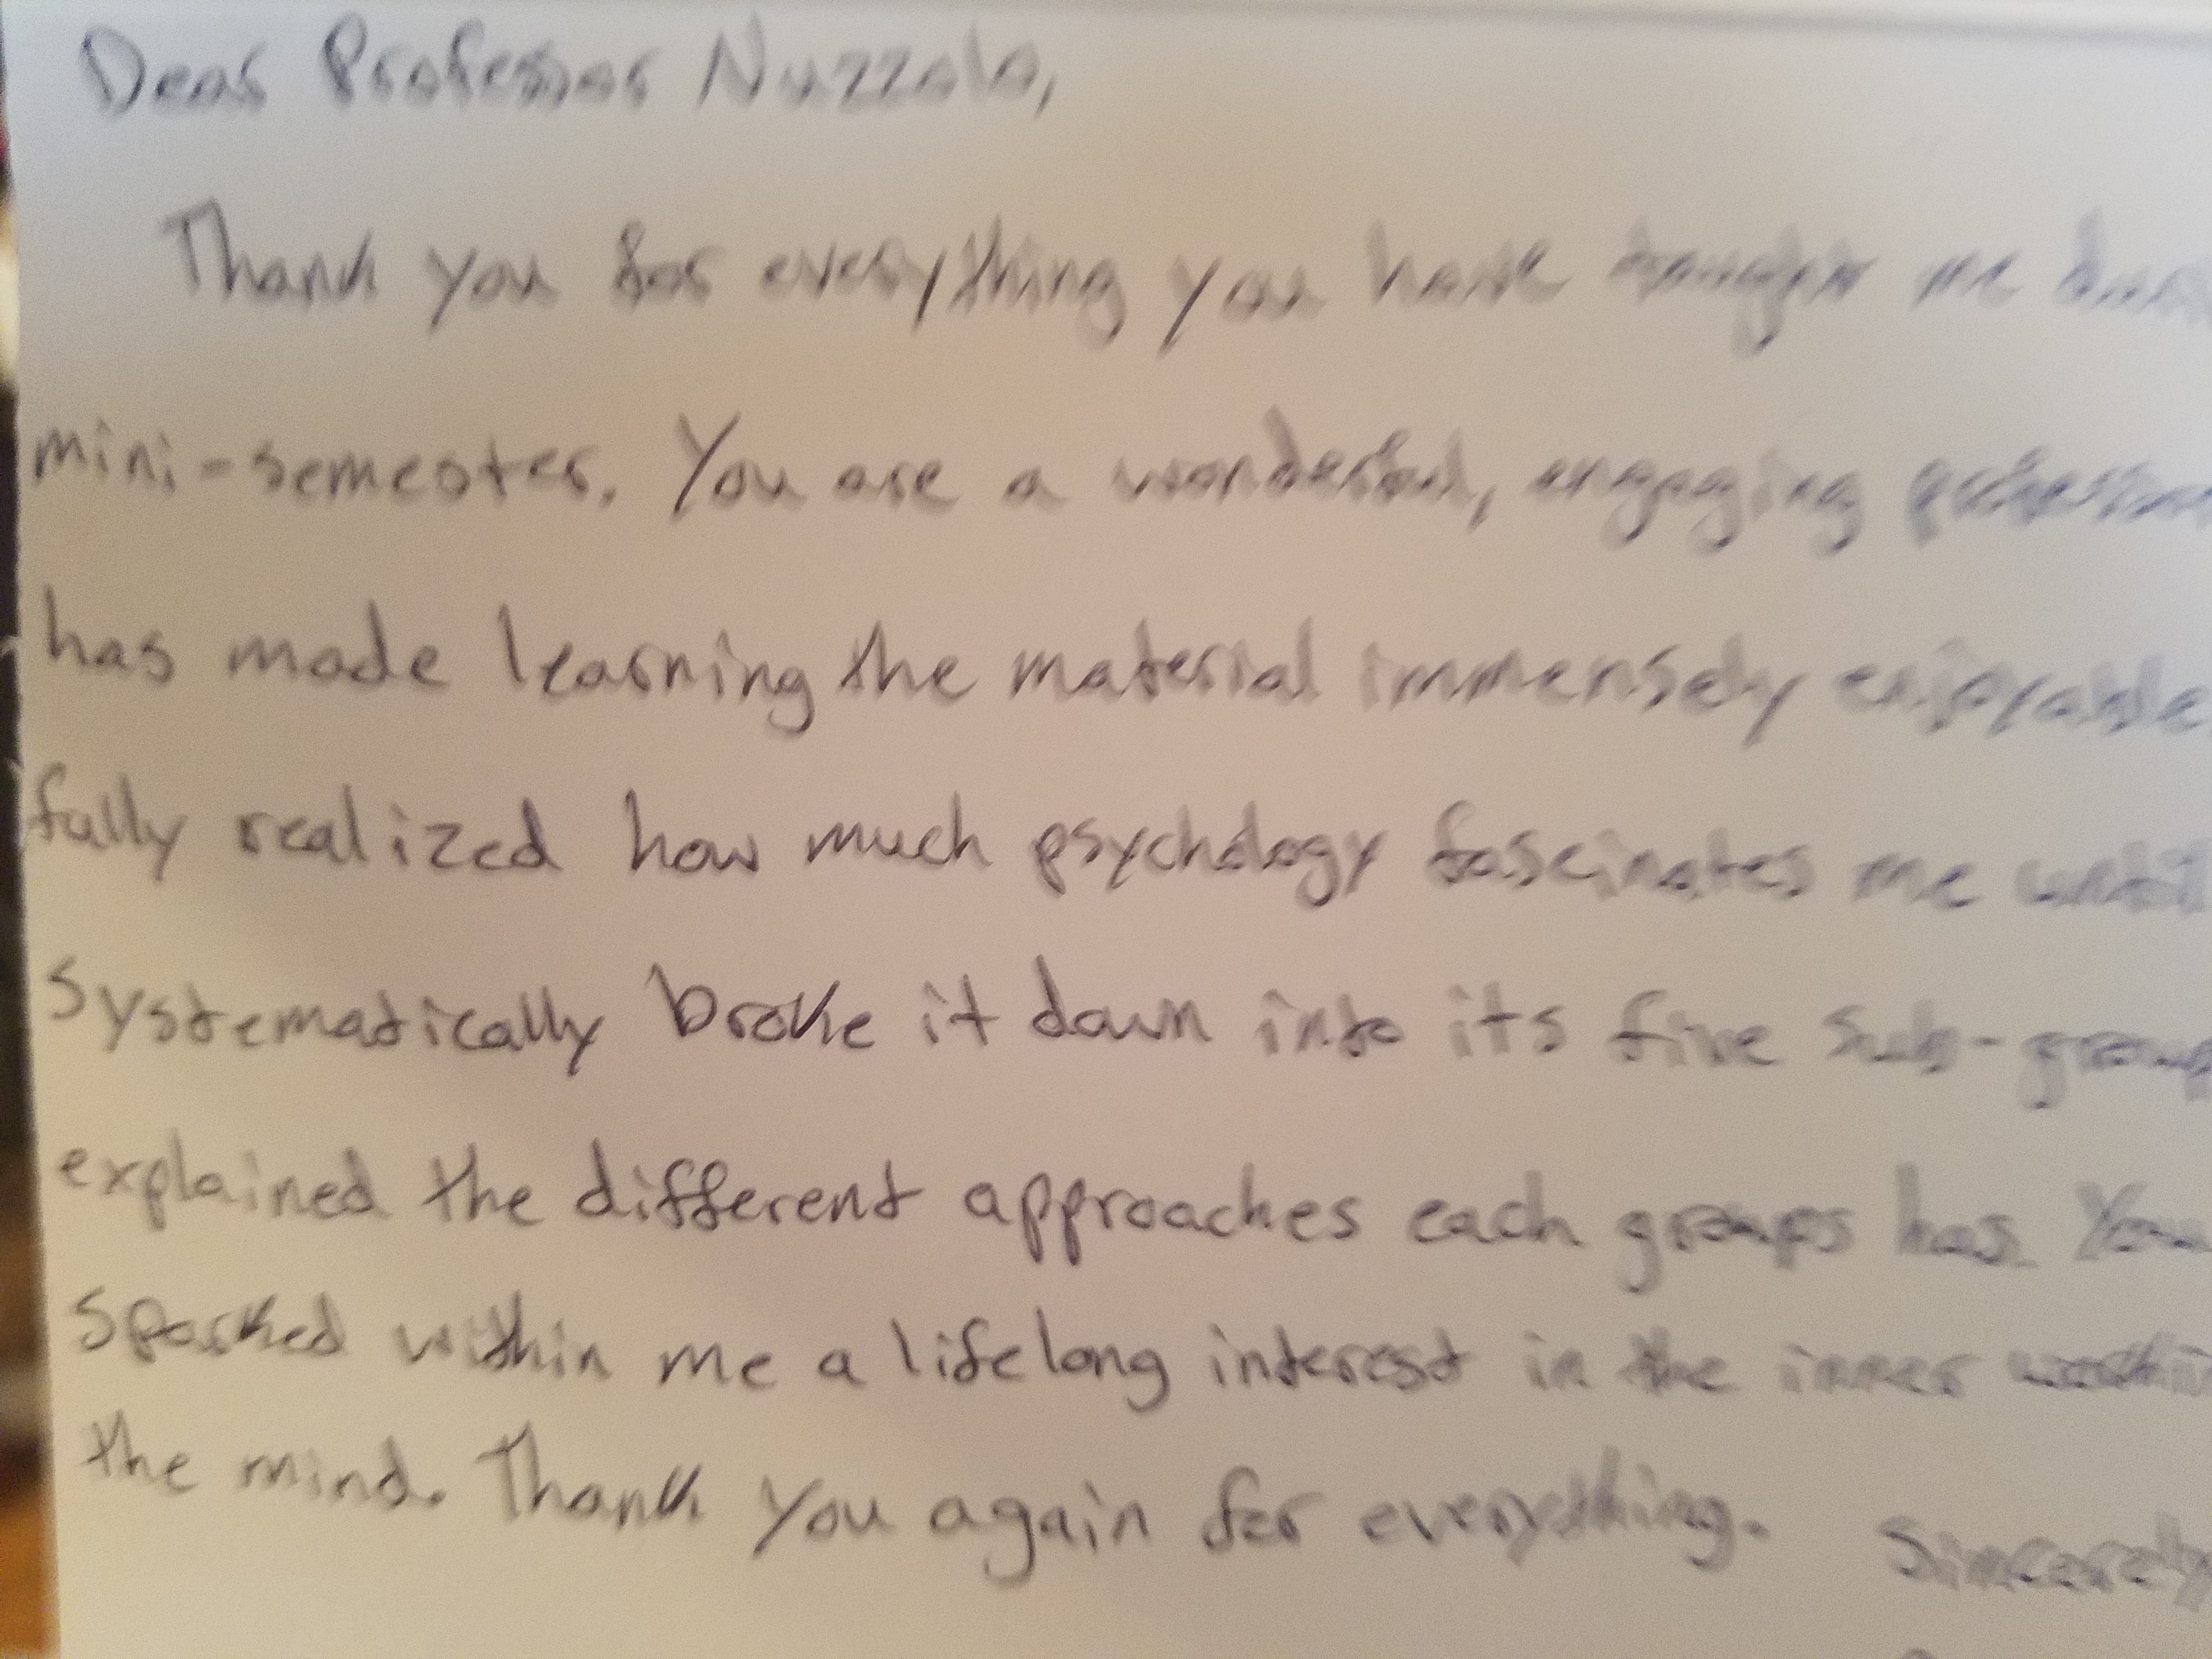 Dear Professor Nuzzolo,
Thank you for everything you have taught me
mini-semester. You are a wonderful, engaging
has made learning the material immensely enjoyable
fully realized how much psychology fascinates me until
systematically broke it down into its five sub-group
explained the different approaches each groups has. You
sparked within me a lifelong interest in the inner
the mind. Thank you again for everything.
Sincerely